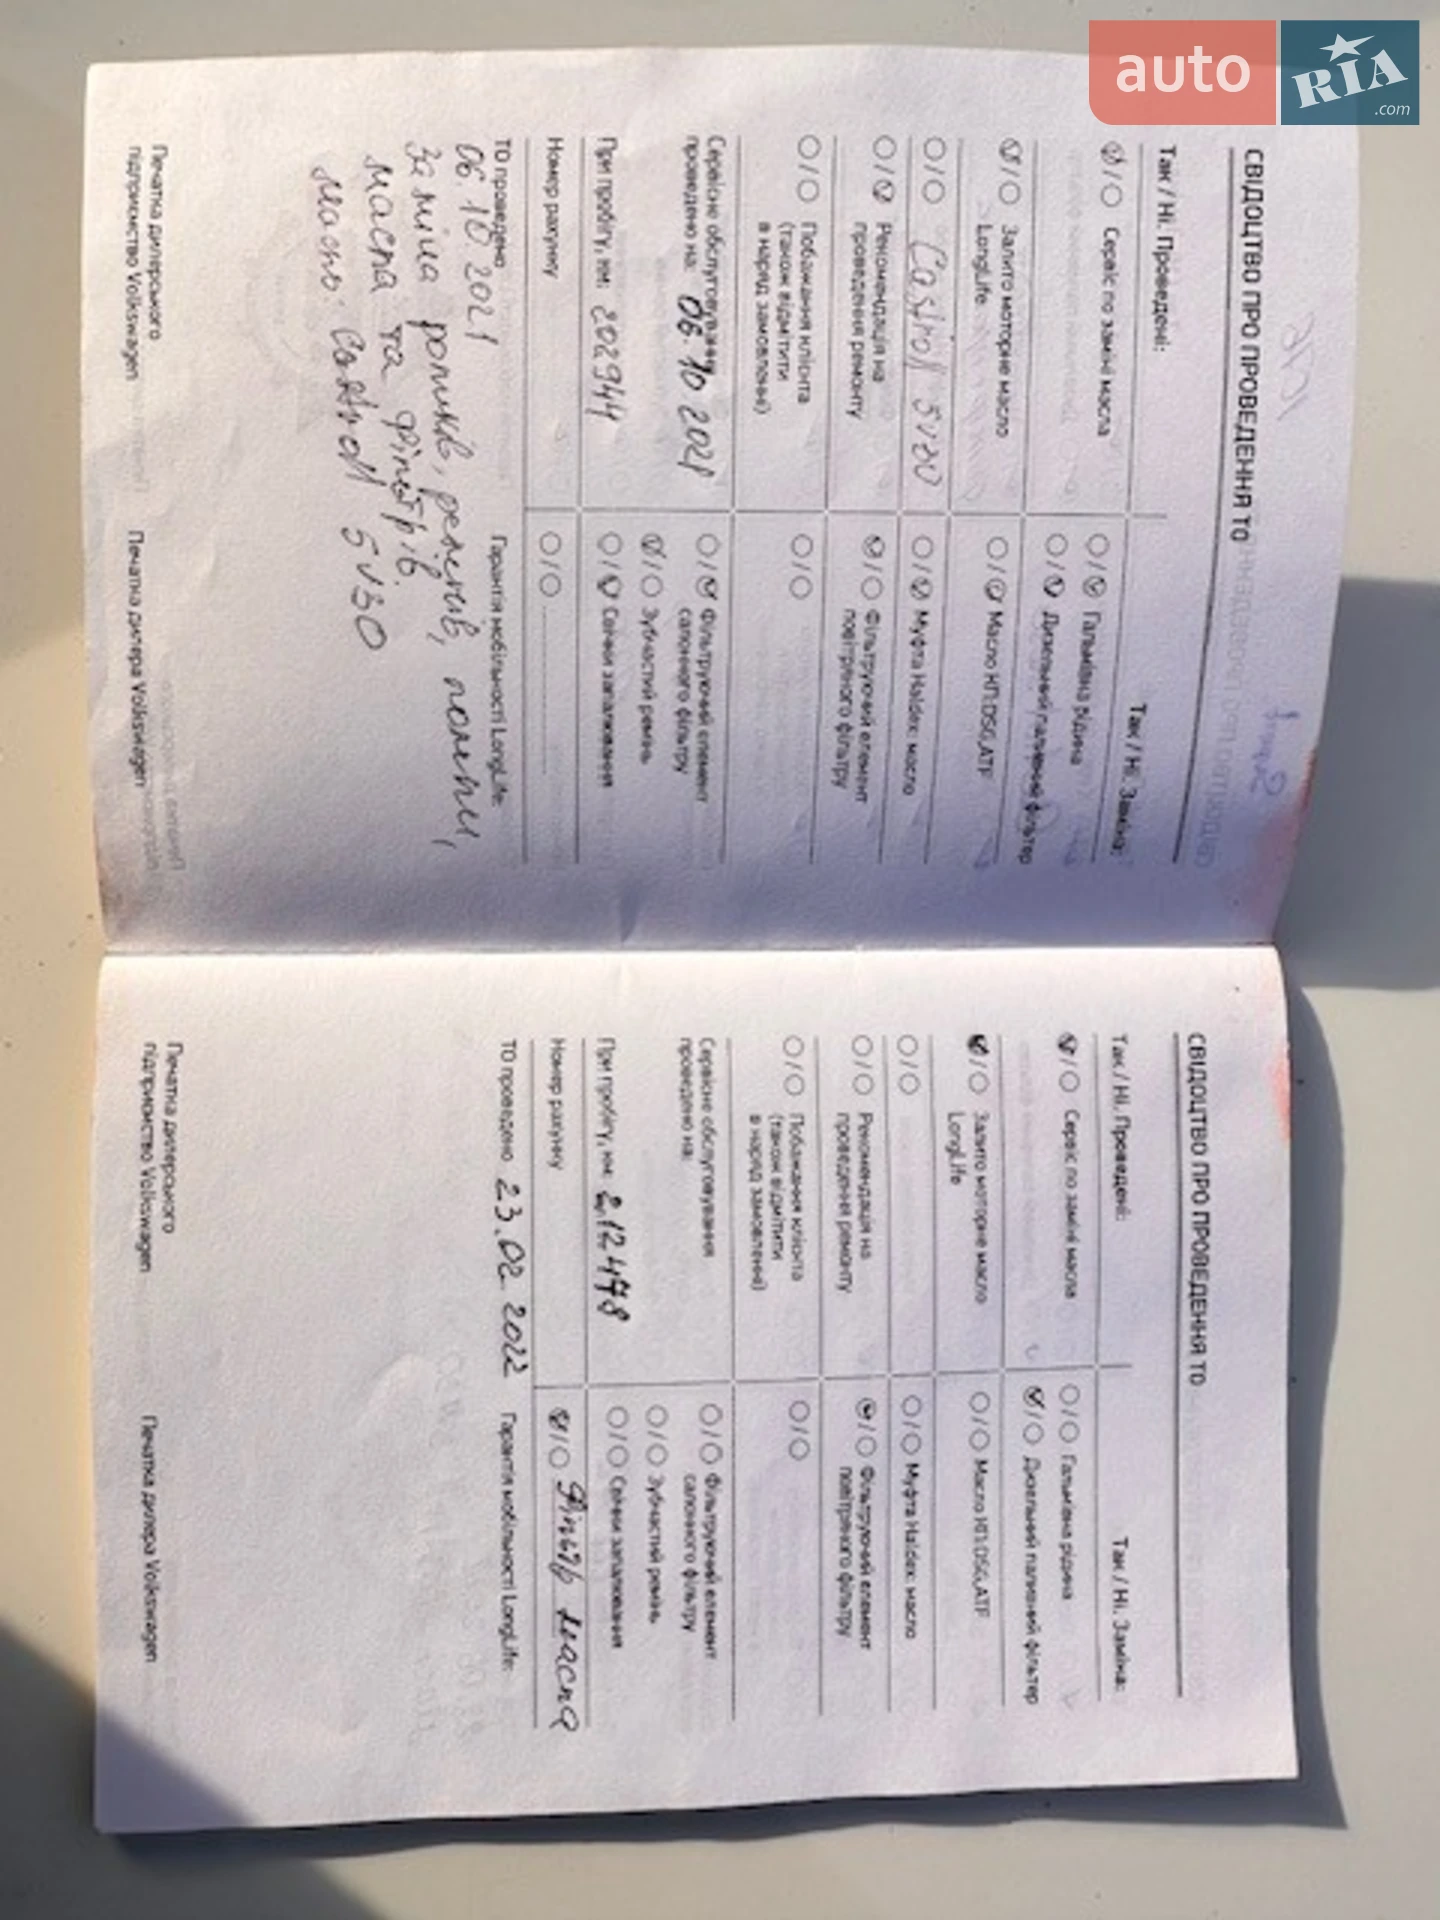 auto
RIA
.com
СВІДОЦТВО ПРО ПРОВЕДЕННЯ ТО
Так / Ні. Проведені:
Сервіс по заміні масла
Залито моторне масло
LongLife
Castroll 5v30
Рекомендація на
проведення ремонту
Побажання клієнта
(також відмітити
в наряд замовленні)
Сервісне обслуговування
проведено на: 06.10 2021
При пробігу, км: 202944
Номер рахунку
Так / Ні. Заміна:
Гальмівна рідина
Дизельний паливний фільтер
Масло КП:DSG,ATF
Муфта Haldex: масло
Фільтруючий елемент
повітряного фільтру
Фільтруючий елемент
салонного фільтру
Зубчастий ремінь
Свічки запалювання
ТО проведено
Гарантія мобільності LongLife:
06.10 2021
Заміна роликів, ременів, помпи,
масла та фільтрів.
масло: Castroll 5v30
Печатка дилерського
підприємство Volkswagen
Печатка дилера Volkswagen
СВІДОЦТВО ПРО ПРОВЕДЕННЯ ТО
Так / Ні. Проведені:
Сервіс по заміні масла
Залито моторне масло
LongLife
Рекомендація на
проведення ремонту
Побажання клієнта
(також відмітити
в наряд замовленні)
Сервісне обслуговування
проведено на:
При пробігу, км: 212478
Номер рахунку
Так / Ні. Заміна:
Гальмівна рідина
Дизельний паливний фільтер
Масло КП:DSG,ATF
Муфта Haldex: масло
Фільтруючий елемент
повітряного фільтру
Фільтруючий елемент
салонного фільтру
Зубчастий ремінь
Свічки запалювання
Фільтр масла
ТО проведено 23.02 2022
Гарантія мобільності LongLife:
Печатка дилерського
підприємство Volkswagen
Печатка дилера Volkswagen